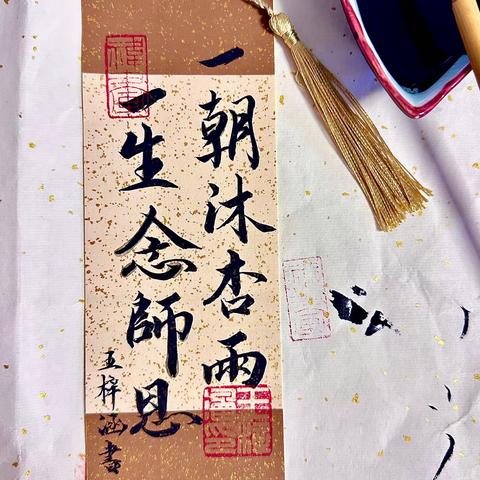 一朝沐杏雨
一生念師恩
王梓涵書